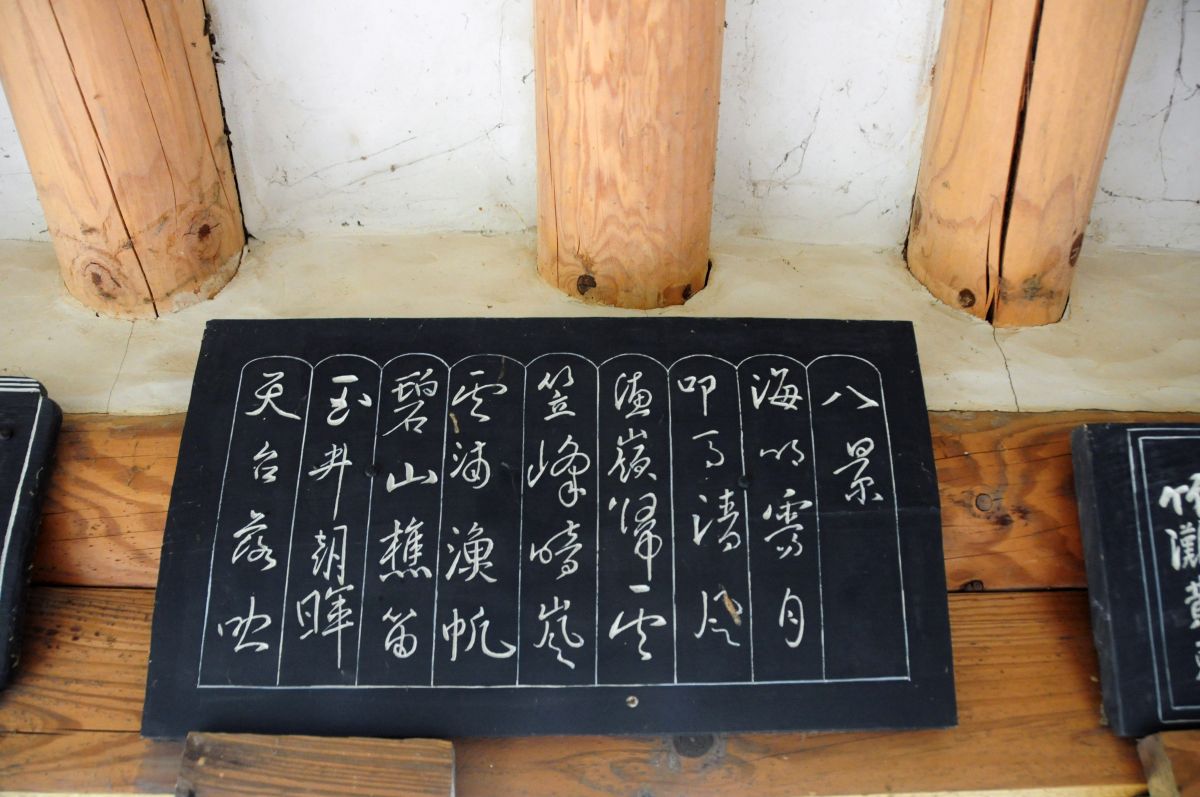 八景
海明霽月
叩 清風
嶺歸雲
笠峰晴嵐
雲浦漁帆
碧山樵笛
玉井朝暉
天台落照